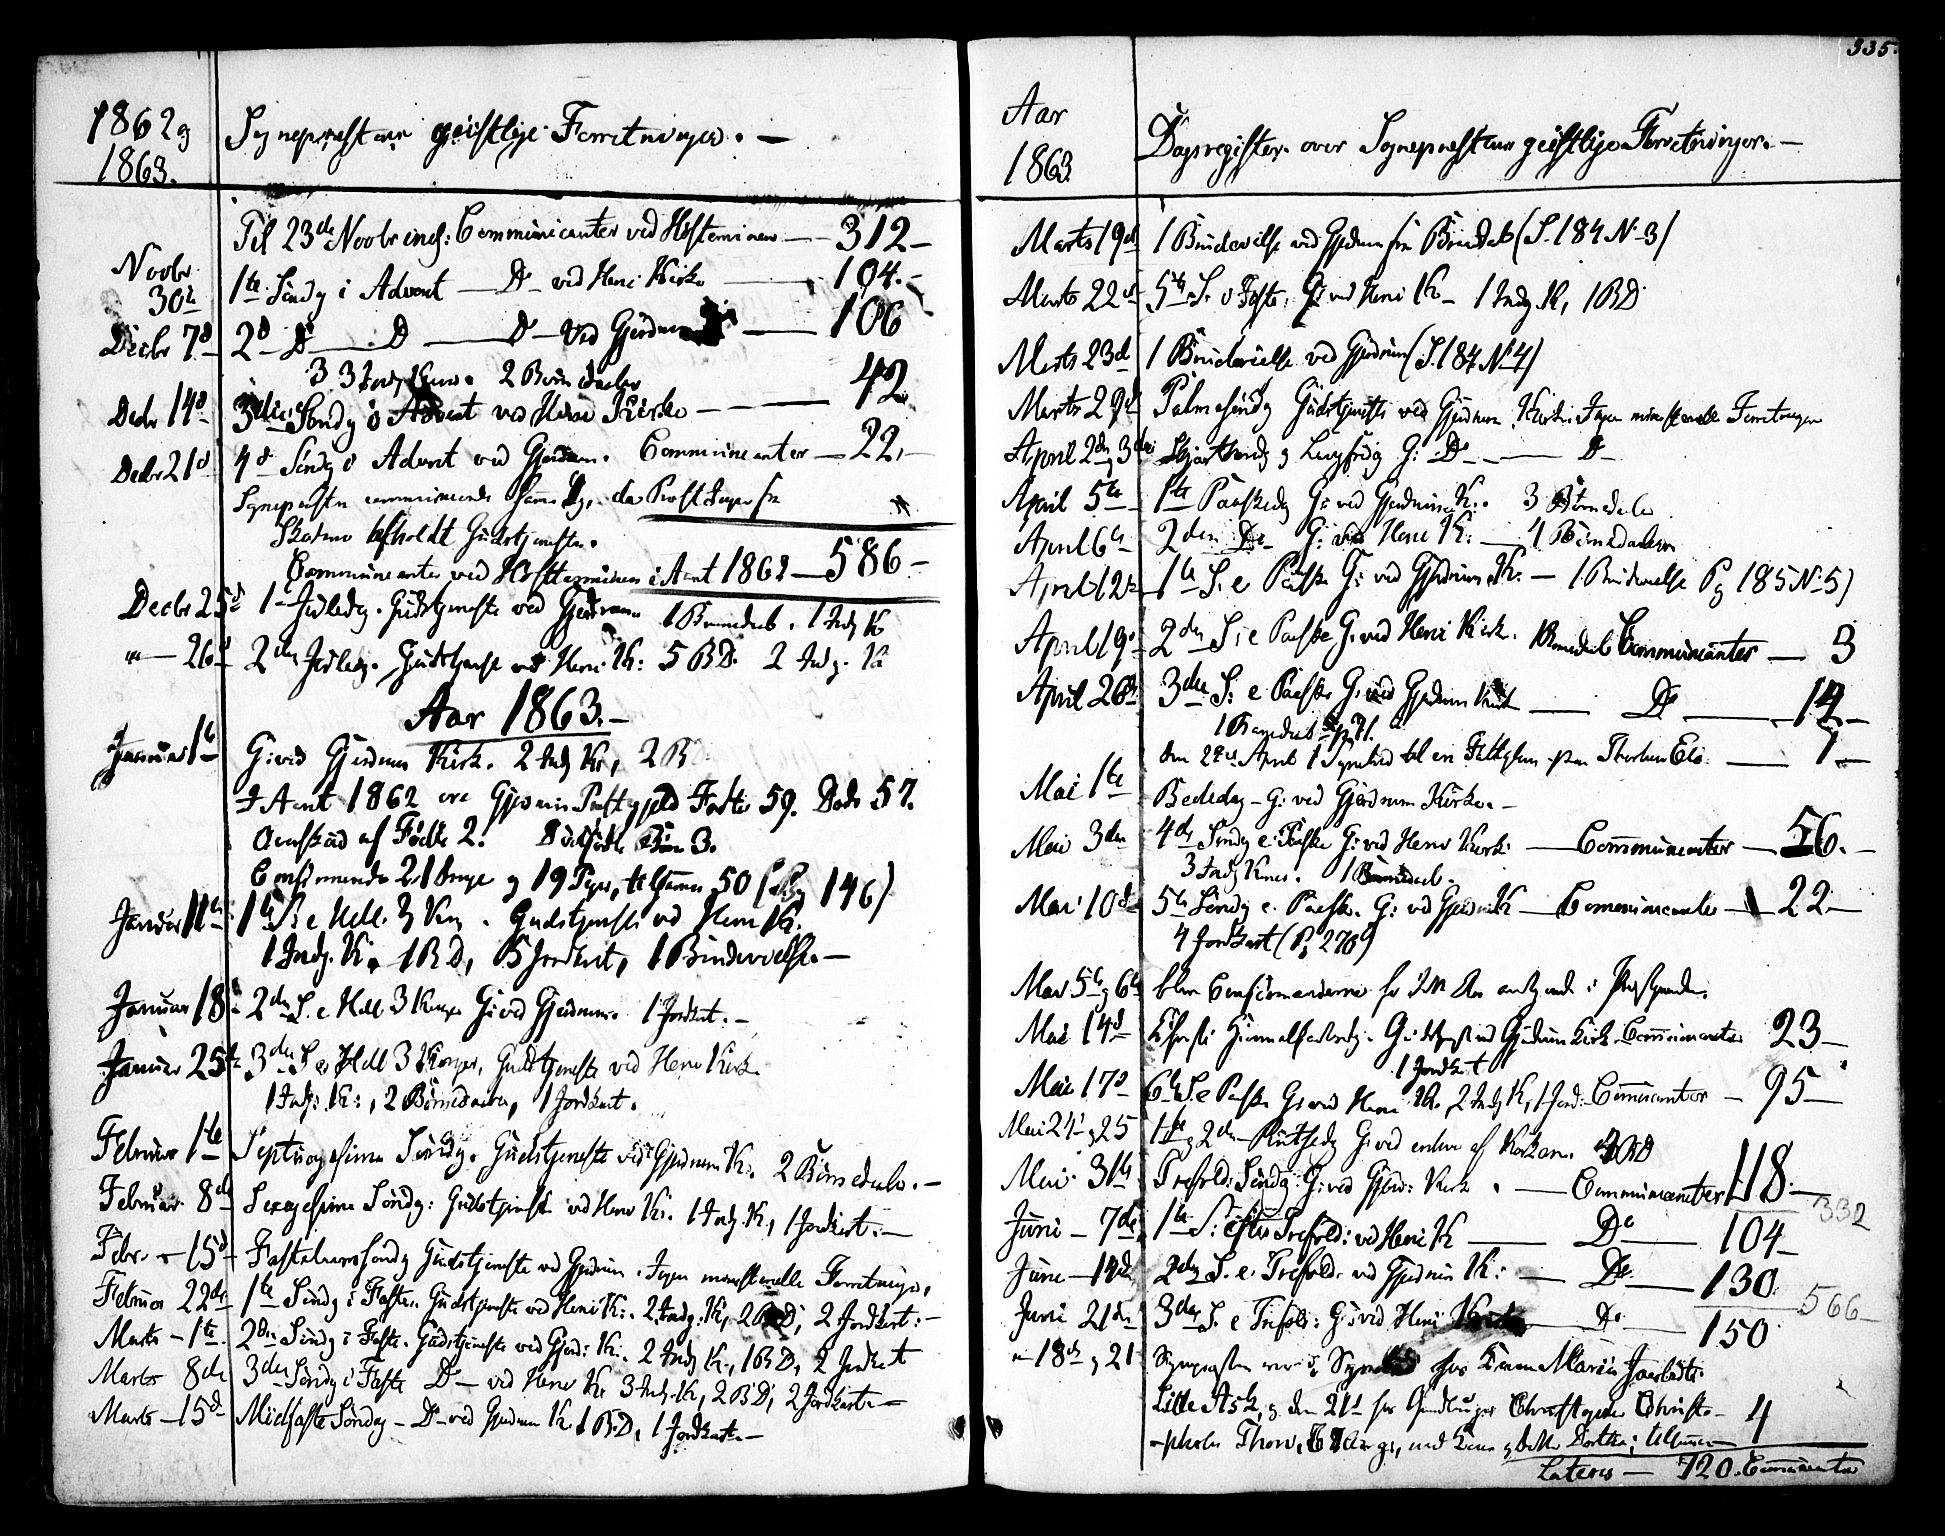 1862 og
1863.
Sognepræstens geistlige Forretninger. —
Til 23de Novbr incl: Communicanter ved Høstterminen — 312 —
Novbr 30te 1te Søndg i Advent — Do — ved Heni Kirke — 104. —
Decbr 7d 2d Do — D — Do — ved Gjerdrum — 106
3 Indg Kone. 2 Børnedaaber
Decbr 14d 3die Søndg i Advent ved Heni Kirke — 42
Decbr 21d 4d Søndg i Advent ved Gjerdrum. Communicanter — 22. —
Sognepræsten communicerede samme Dg, da Provst
afholdt Gudstjenesten.
Communicanter ved Høstterminen i Aaret 1862 — 586 —
Decbr 25d 1 — Juledag. Gudstjeneste ved Gjerdrum. 1 Barnedaab. 1 Indg K
" — 26d 2den Juledag. Gudstjeneste ved Heni K: 5 BD. 2 Indg. K
Aar 1863. —
Januar 1te G: ved Gjerdrum Kirke. 2 Indg K, 2 B
I Aaret 1862 ere i Gjerdrums Præstegjeld Fødte 59. Døde 57.
Overskud af Fødte 2. Dødfødte Børn 3.
Confirmerede 21 Drenge og 19 Piger, tilsammen 50 (Pag 146)
Januar 11te 1te S. e. Hell. 3 Kong. Gudstjeneste ved Heni K.
1 Indg. K. 1 BD, 5 Jordkast, 1 Brudevielse. —
Januar 18d 2den S. e Hell 3 Konger G: ved Gjerdrum. 1 Jordkast. —
Januar 25te 3die S. e Hell 3 Konger, Gudstjeneste ved Heni Kirke
1 Indg: K:, 2 Børnedaaber, 1 Jordkast.
Februar 1te Septuagesima Søndg. Gudstjeneste ved Gjerdrum K. 2 Børnedaaber. —
Februar 8de Sexagesima Søndg: Gudstjeneste ved Heni K:. 1 Indg. K, 1 Jordkast: —
Febr. — 15d Fastelavnssøndg Gudstjeneste ved Gjerdrum. Ingen ministerielle Forretninger.
Februar 22de 1te Søndg i Faste. Gudstjeneste ved Heni K:. 2 Indg: K, 2 BD, 2 Jordkast: —
Marts — 1te 2den Søndg i Faste. Gudstjeneste ved Gjerd: K. 2 Indg K, 1 BD, 2 Jordkast
Marts 8de 3die Søndg i Faste D — ved Heni K. 3 Indg. K, 2 BD, 2 Jordkast —
Marts — 15d Midfaste Søndag — D — ved Gjerdrum K. 1 BD, 1 Jordkast. —
335.
Aar
1863.
Dagsregister over Sognepræstens geistlige Forretninger. —
Marts 19d 1 Brudevielse ved Gjerdrum (S. 184 No 3)
Marts 22d 5te S. i Faste. G: ved Heni K — 1 Indg. K, 1 BD
Marts 23d 1 Brudevielse ved Gjerdrum (S. 184 No 4)
Marts 29d Palmesøndg Gudstjeneste ved Gjerdrum Kirke. Ingen ministerielle Forretninger
April 2den og 3die Skjærtorsdg og Langfredg G: Do — — D —
April 5te 1te Paaskedg G: ved Gjerdrum K. 3 Børnedaaber
April 6te 2den Do G: ved Heni K: — 4 Børnedaaber
April 12te 1te S. e Paaske G: ved Gjerdrum K. — 1 Brudevielse Pg 185 No 5)
April 19de 2den S. e Paaske G. ved Heni Kirke. Communicanter — 3
April 26de 3die S: e Paaske G. ved Gjerdrum Kirke — Do — 14 —
1 Barnedaab
den 2 April 1 Sognebud til en Fattiglem — 1 —
Mai 1te Bededag — G: ved Gjerdrum Kirke. —
Mai 3die 4de Søndg e. Paaske G: ved Heni Kirke — Communicanter — 56. —
3 Indg Koner. 1 Barnedaab.
Mai 10de 5te Søndg e. Paaske. G: ved Gjerdrum K — Communicanter — 22 —
4 Jordkast (Pg 270)
Mai 5te og 6te blev Confirmanderne for
Mai 14d Christi Himmelfartsdg. Gudstjeneste ved Gjerdrum Kirke. Communicanter 23 —
1 Jordkast
Mai 17d 6te S. e Paaske G: ved Heni K. 2 Indg K, 1 Jord: Communicanter — 95 —
Mai 24 og 25 1te og 2den Pintsedg G: ved enhver af Kirkerne. BD
Mai 31te Trefold: Søndg: G: ved Gjerd: Kirke. — Communicanter 118. —
332
Juni — 7de 1te S: efter Trefold: ved Heni K — Do — 104 —
Juni — 14de 2den S. e. Trefold: ved Gjerdrum K: — Do — 130.
566
Juni 21de 3die S. e Trefold: G: ved Heni Kirke — Do — 150
" — 18de og 21
Lille Ask, og den 21d hos Christopher Christo-
-phers Thorv, tilsammen — 4
Lateris — 720. Communicanter